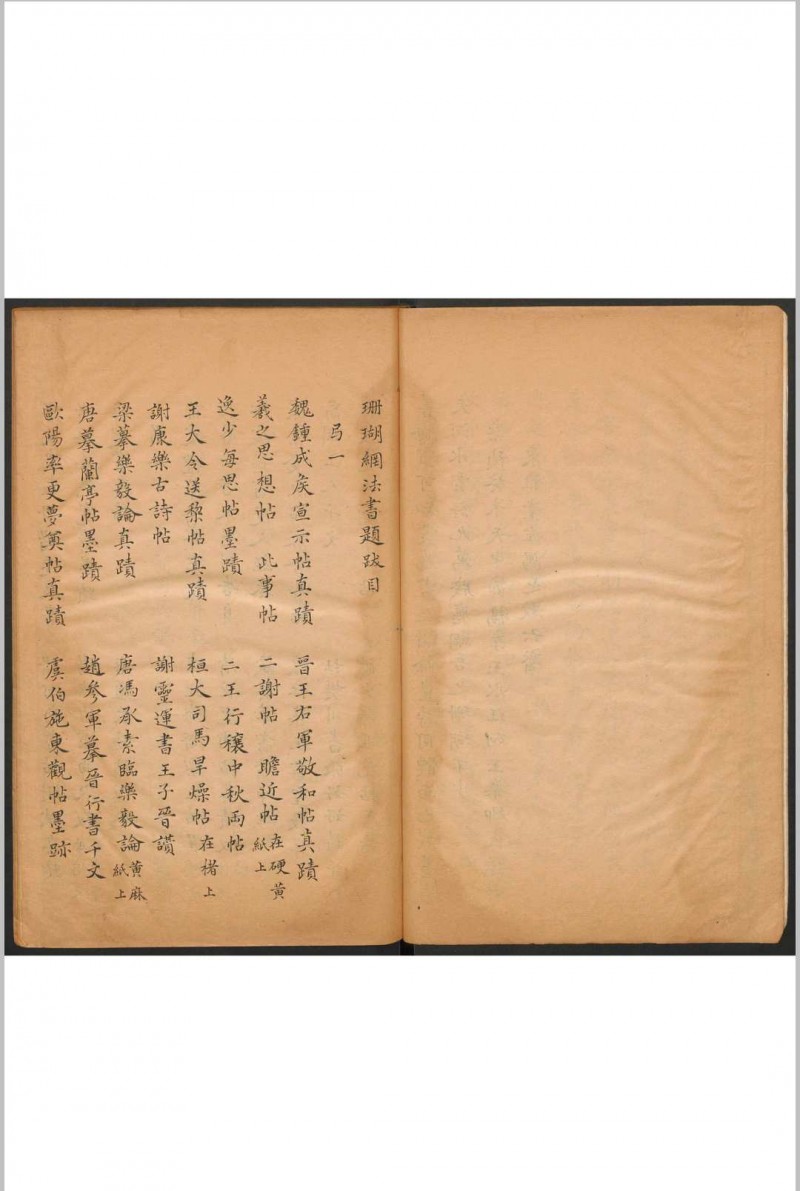 珊瑚網法書題跋目
弓一
魏鍾成矦宣示帖真蹟 晉王右軍敬和帖真蹟
羲之思想帖 此事帖 二謝帖 瞻近帖 在硬黃紙上
逸少每思帖墨蹟 二王行穰中秋兩帖
王大令送棃帖真蹟 桓大司馬旱燥帖 在楮上
謝康樂古詩帖 謝靈運書王子晉讚
梁摹樂毅論真蹟 唐馮承素臨樂毅論 黃麻紙上
唐摹蘭亭帖墨蹟 趙參軍摹晉行書千文
歐陽率更夢奠帖真蹟 虞伯施東觀帖墨跡